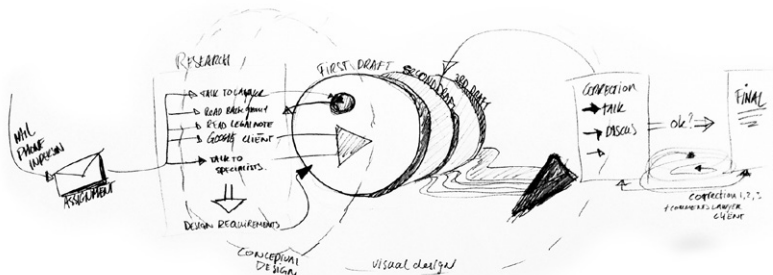 MAIL
PHONE
IN PERSON
ASSIGNMENT
RESEARCH
TALK TO LAWYER
READ BACKGROUND
READ LEGAL NOTE
GOOGLE CLIENT
TALK TO
SPECIALISTS.
DESIGN REQUIREMENTS
CONCEPTUAL
DESIGN
FIRST DRAFT
SECOND DRAFT
3RD DRAFT
visual design
CORRECTION
TALK
DISCUS
ok?
FINAL
correction 1, 2, 3
+ COMMENTS LAWYER
CLIENT